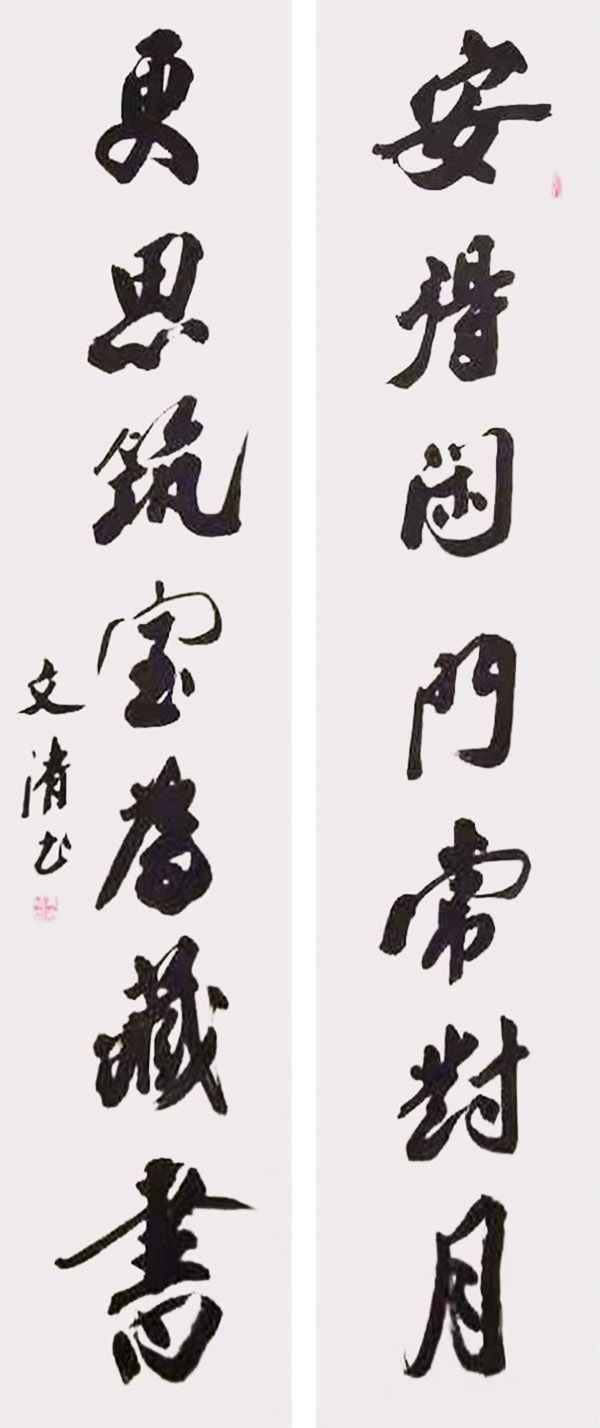 安得閉門常對月
更思筑室為藏書
文清书